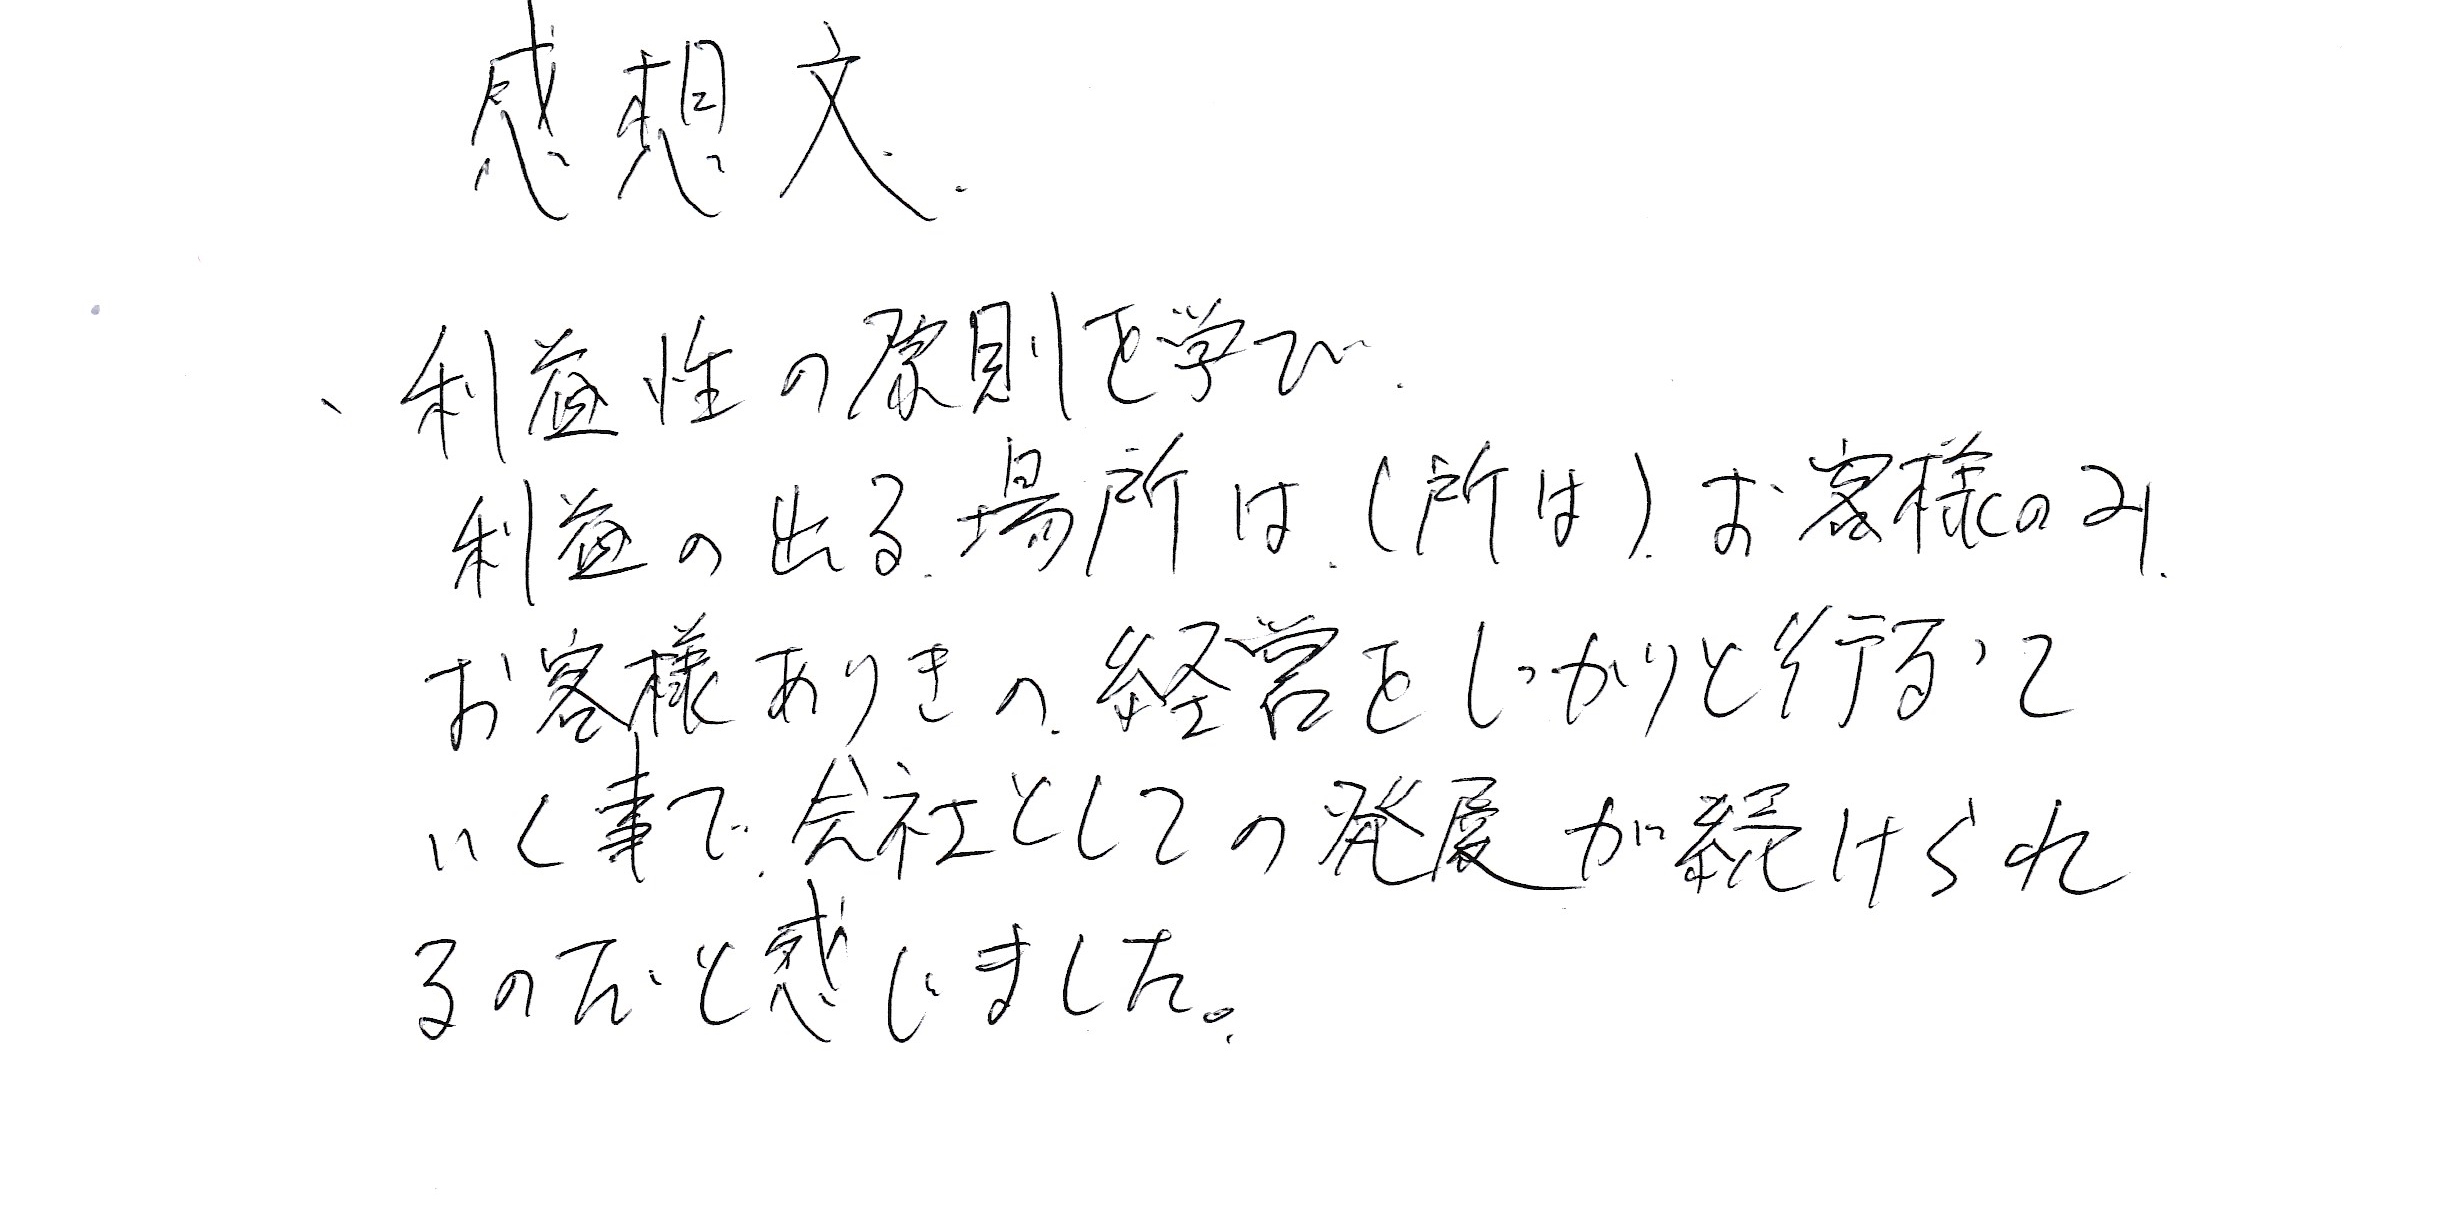 感想文.
、利益性の原則を学び.
利益の出る.場所は.(所は).お客様のみ.
お客様ありきの.経営をしっかりと行なって
いく事で.会社としての発展が続けられ
るのだと感じました。